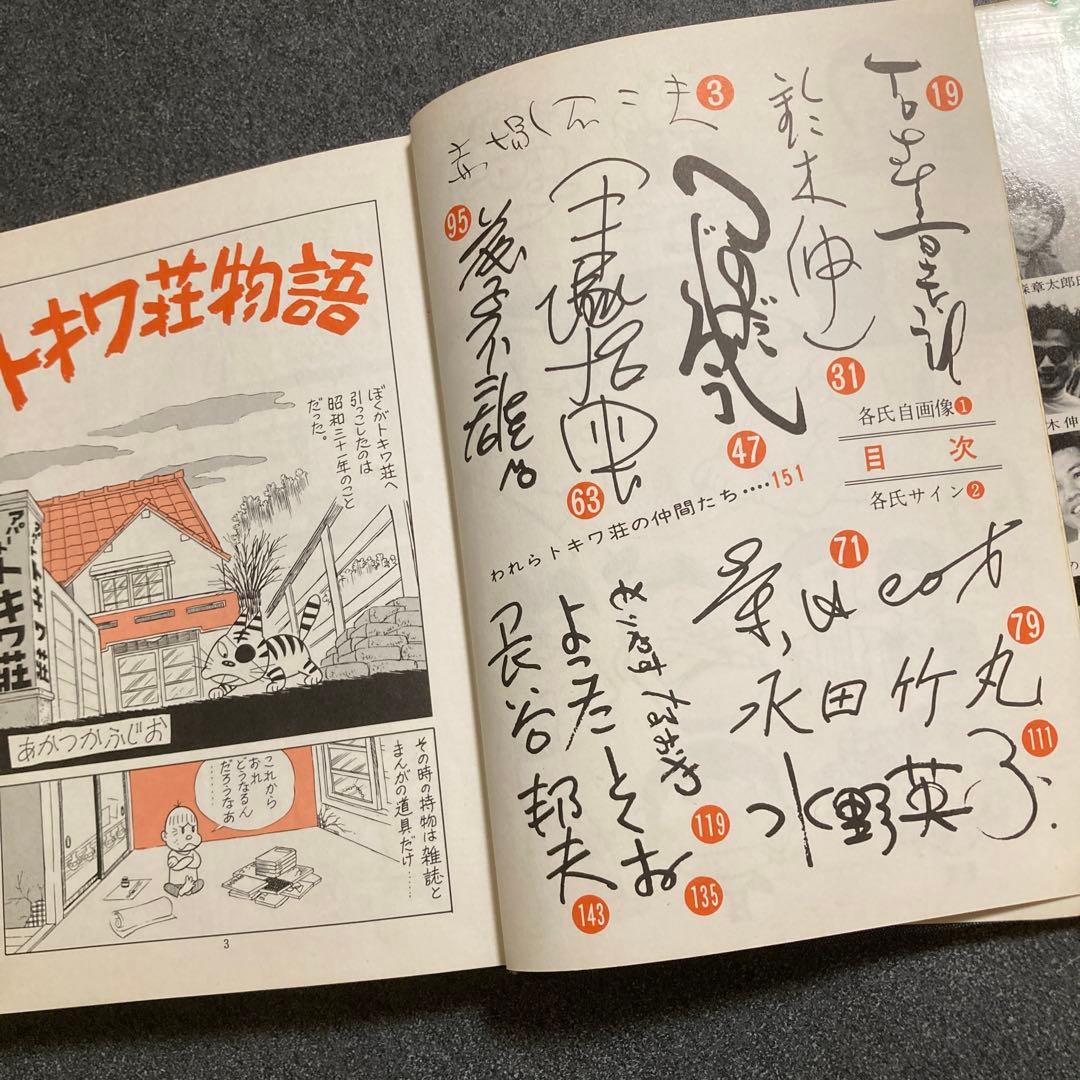 トキワ荘物語
ぼくがトキワ荘へ
引っこしたのは
昭和三十一年のこと
だった。
アパートトキワ荘
トキワ荘
あかつかふじお
その時の持物は雑誌と
まんがの道具だけ……
これから
おれ
どうなるん
だろうなあ
………
3
赤塚不二夫
3
19
鈴木伸一
31
つのだじろう
47
手塚治虫
63
藤子不二雄
95
各氏自画像1
目次
各氏サイン2
われらトキワ荘の仲間たち‥‥151
71
永田竹丸
79
水野英子
111
119
よこたとくお
135
長谷邦夫
143
森章太郎氏
木伸
の